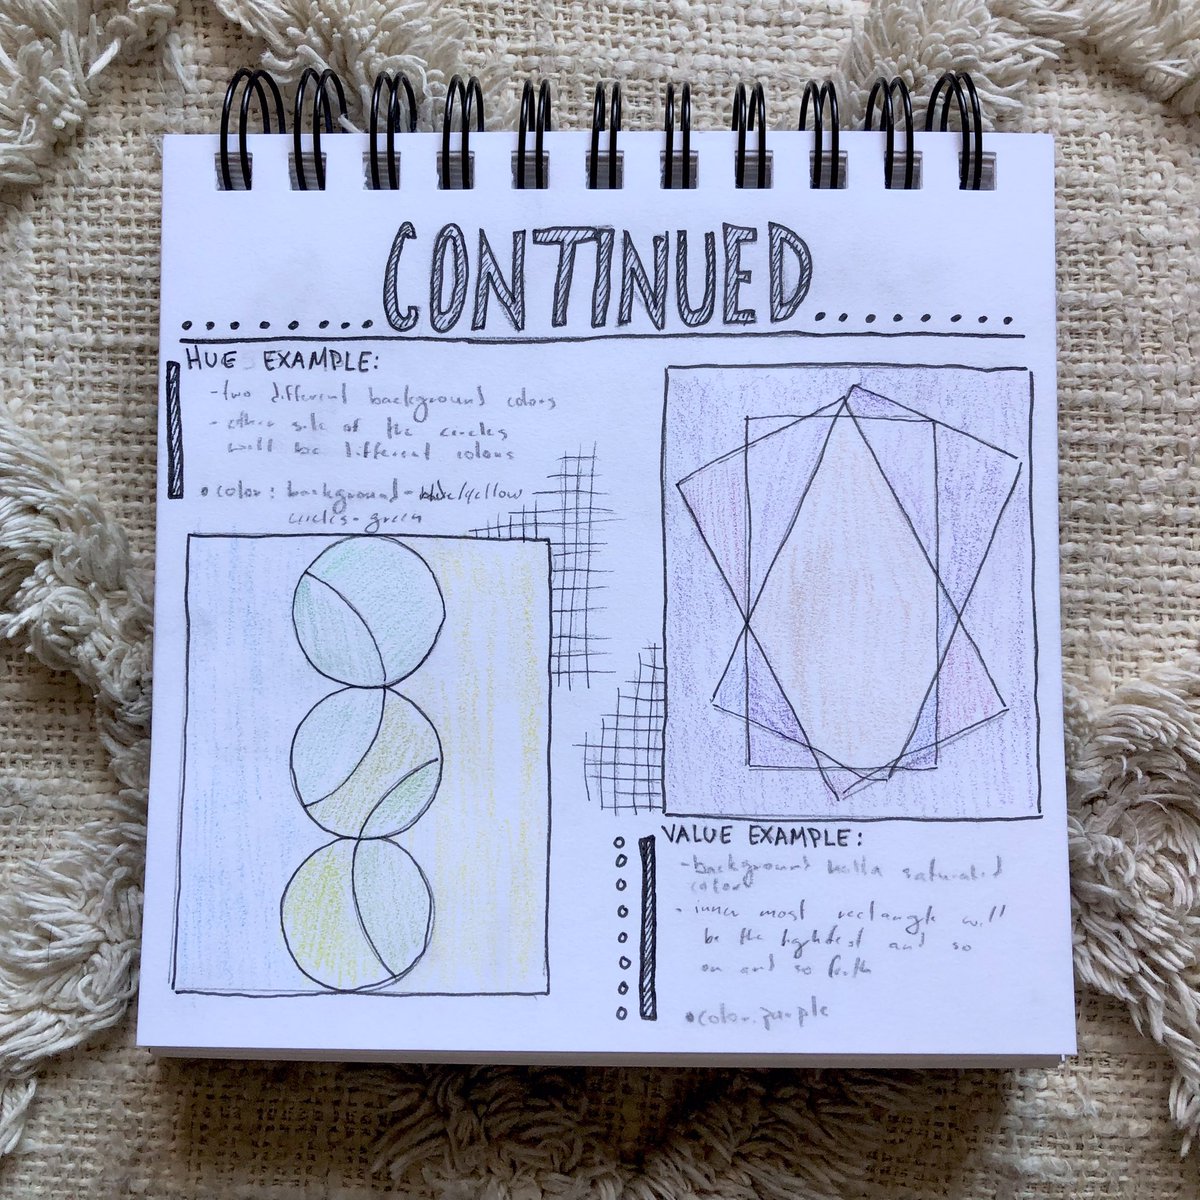 CONTINUED
HUE EXAMPLE:
-two different background colors
- other side of the circles
will be different colors
• color: background - blue/yellow
circles - green
VALUE EXAMPLE:
-background saturated
color
- inner most rectangle will
be the lightest and so
on and so forth
• color: purple